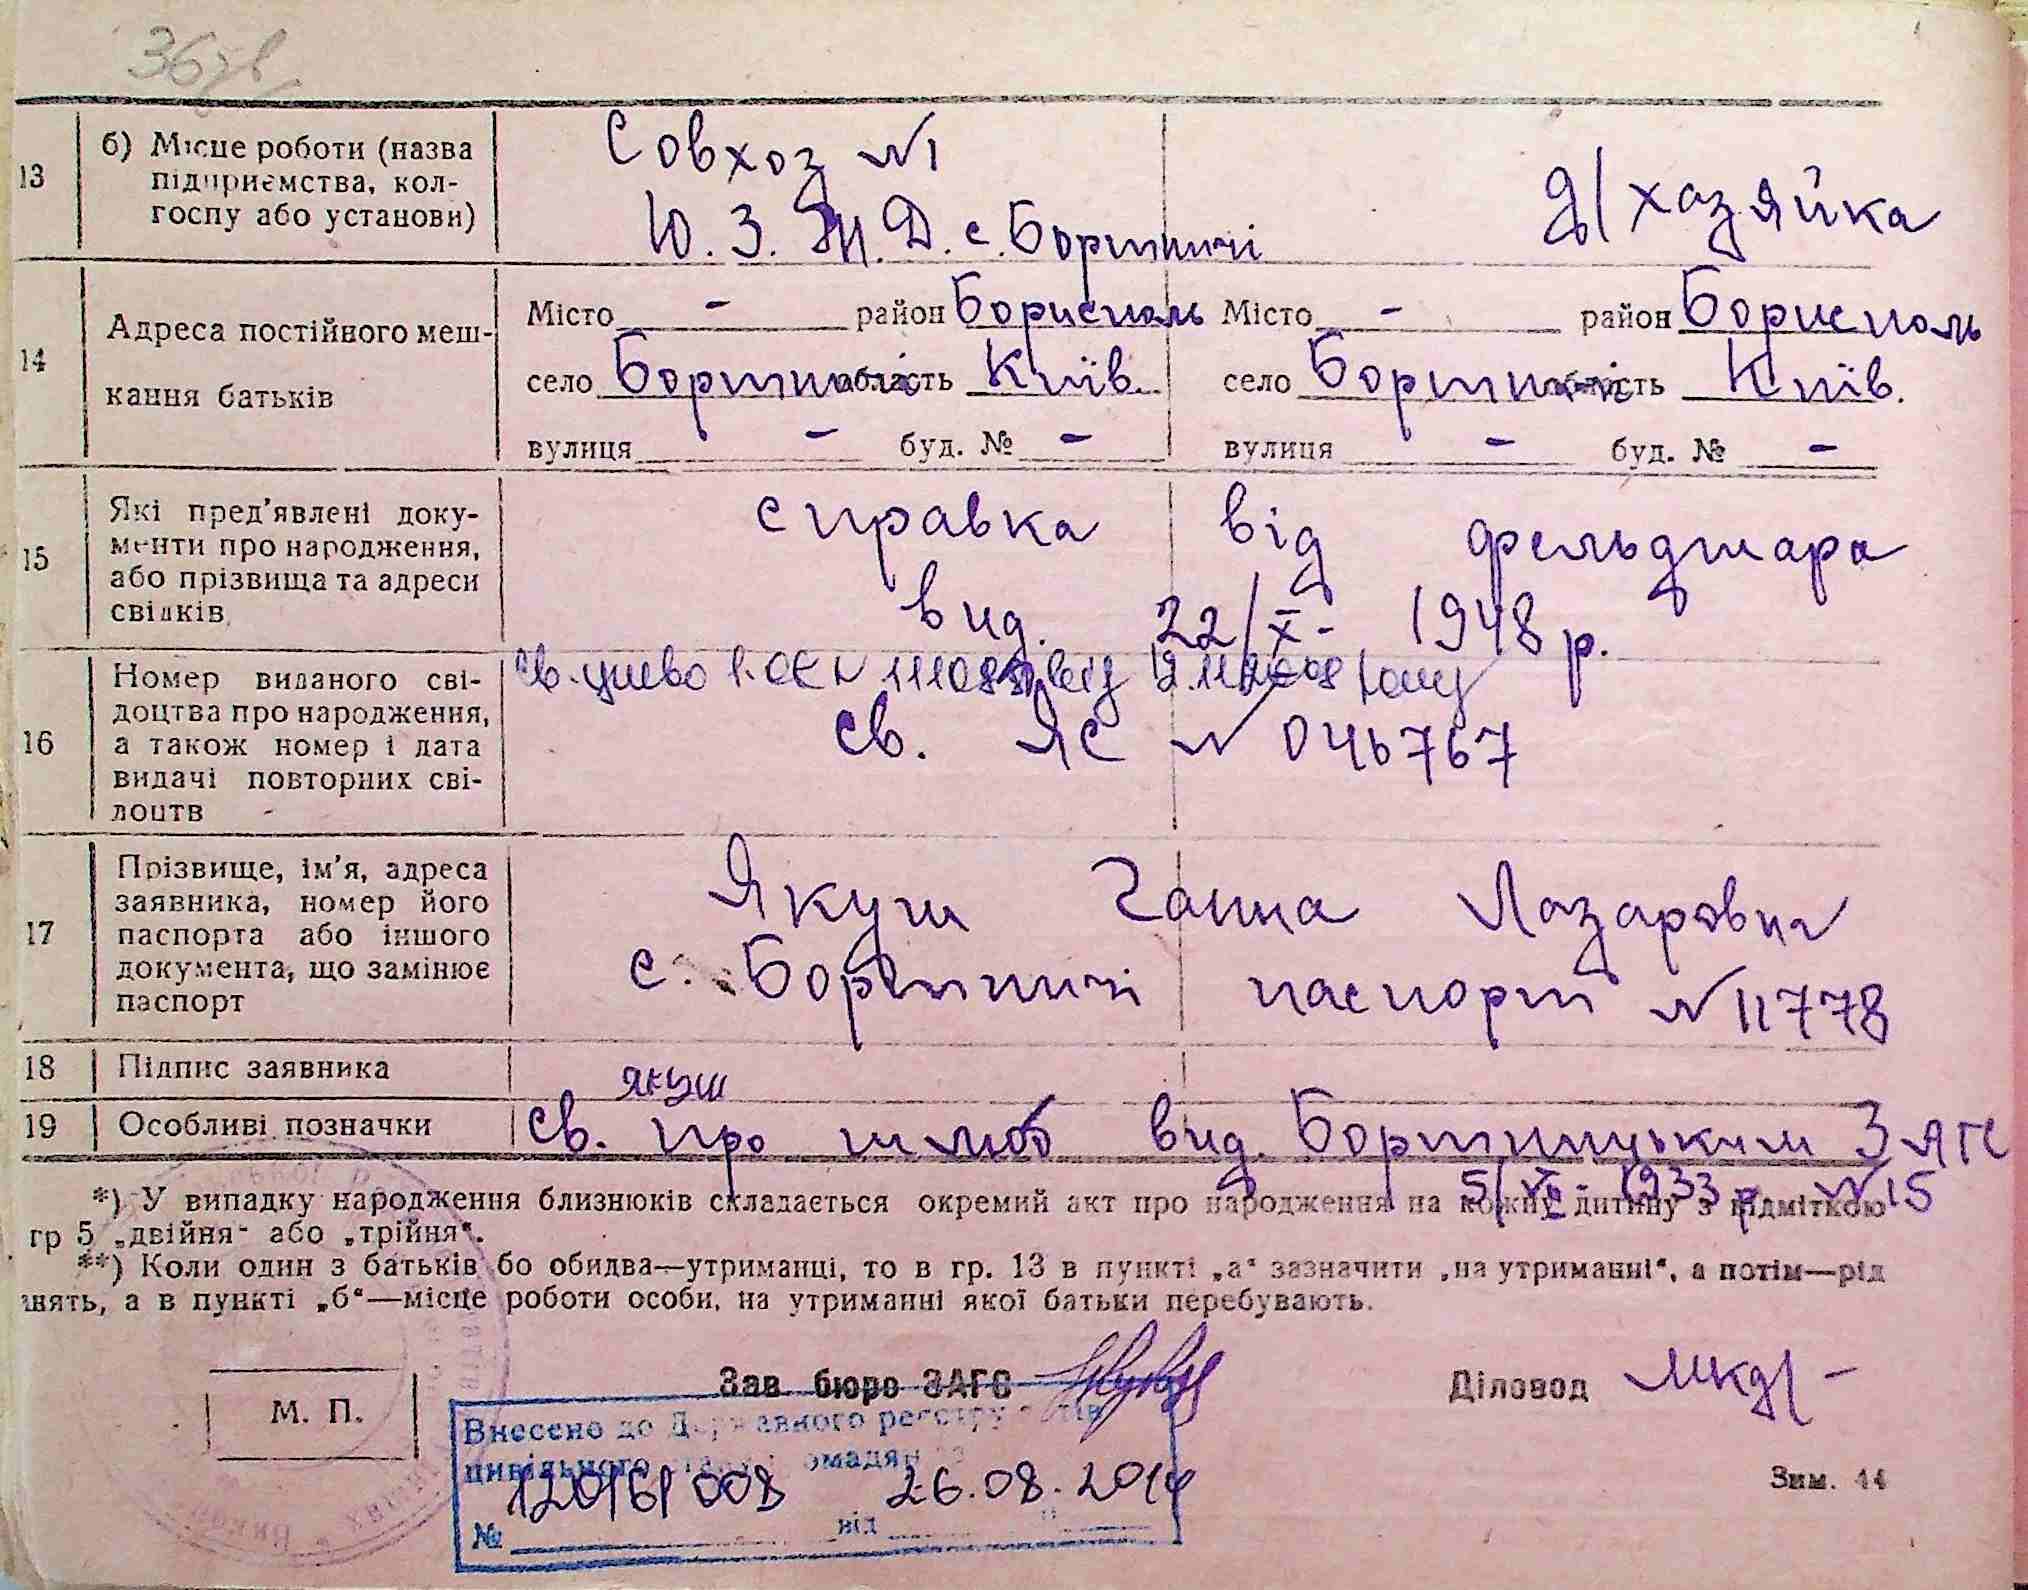 36зв
13 б) Місце роботи (назва підприємства, кол-госпу або установи)
Совхоз №1
Ю. З. Ж. Д. с. Бортничі
д/хазяйка
14 Адреса постійного меш-
кання батьків
Місто - район Борисполь Місто - район Борисполь
село Бортничі область Київ. село Бортничі область Київ.
вулиця - буд. № - вулиця - буд. № -
15 Які пред'явлені доку-
менти про народження,
або прізвища та адреси
свідків
справка від фельдшара
вид. 22/X- 1948 р.
16 Номер виданого сві-
доцтва про народження,
а також номер і дата
видачі повторних сві-
доцтв
св. ЯЄ № 046767
17 Прізвище, ім'я, адреса
заявника, номер його
паспорта або іншого
документа, що замінює
паспорт
Якуш Ганна Лазаровна
с. Бортничі паспорт № 11778
18 Підпис заявника
якуш
19 Особливі позначки
св. про шлюб вид. Бортницьким ЗАГС
1933 р. №15
*) У випадку народження близнюків складається окремий акт про народження на кожну дитину з відміткою
гр 5 „двійня" або „трійня".
**) Коли один з батьків бо обидва—утриманці, то в гр. 13 в пункті „а" зазначити „на утриманні", а потім—рід
знять, а в пункті „б"—місце роботи особи, на утриманні якої батьки перебувають.
Зав бюро ЗАГС
Діловод
М. П.
Внесено до Державного реєстру актів
цивільного стану громадян
120161008 26.08.2014
№ від
Зим. 44